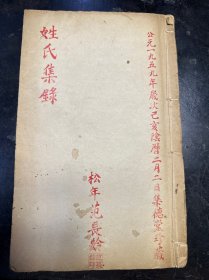 公元一九五九年歲次己亥陰曆二月二日集德堂珍藏
姓氏集錄
松年范長齡